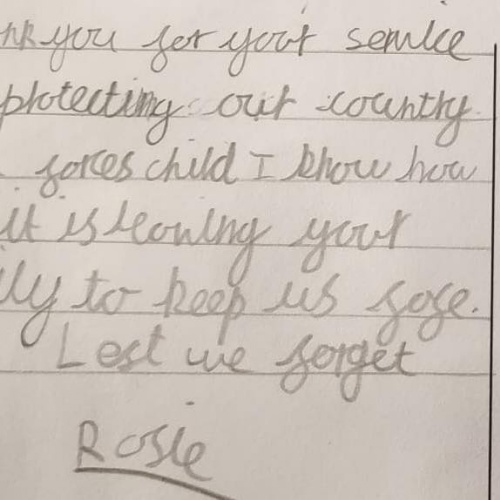 nk you for your service
protecting our country
forces child I know how
it is leaving your
ily to keep us safe.
Lest we forget
Rosie